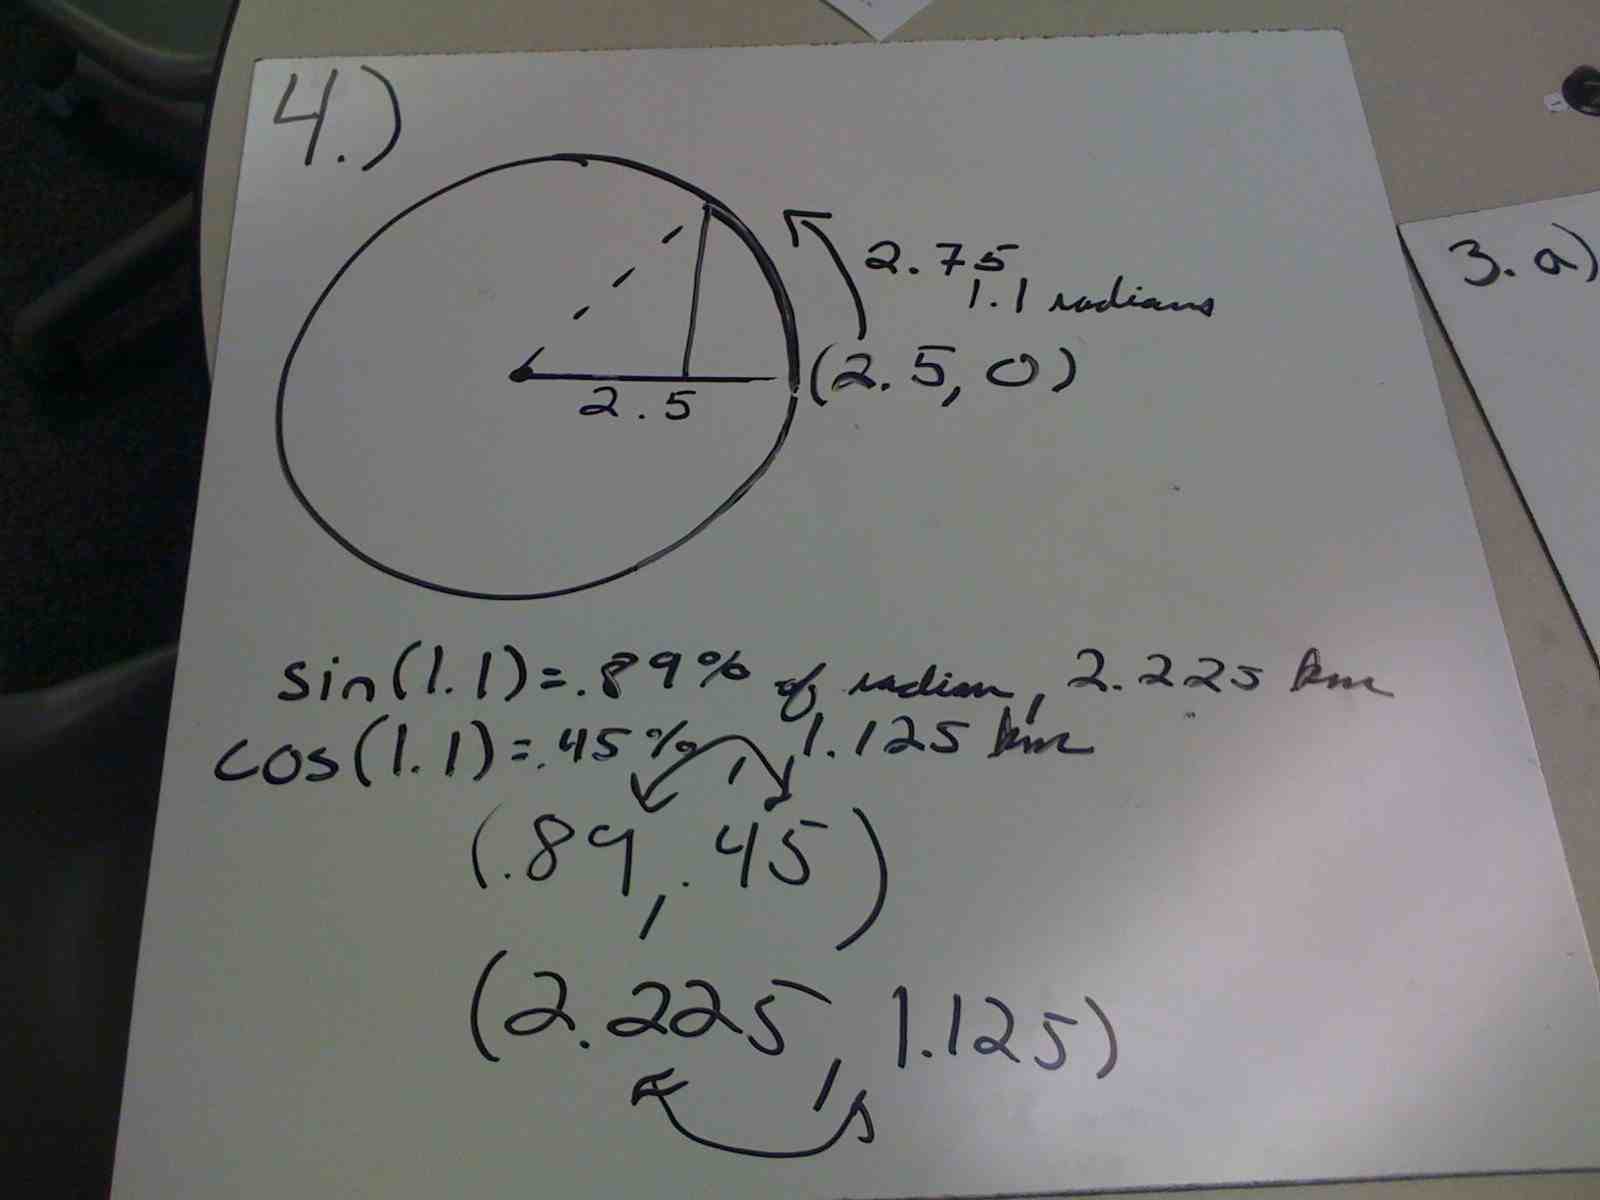 4.)
2.75
1.1 radians
(2.5, 0)
2.5
sin(1.1)=.89% of radian, 2.225 km
cos(1.1)=.45% 1.125 km
(.89, .45)
(2.225, 1.125)
3. a)